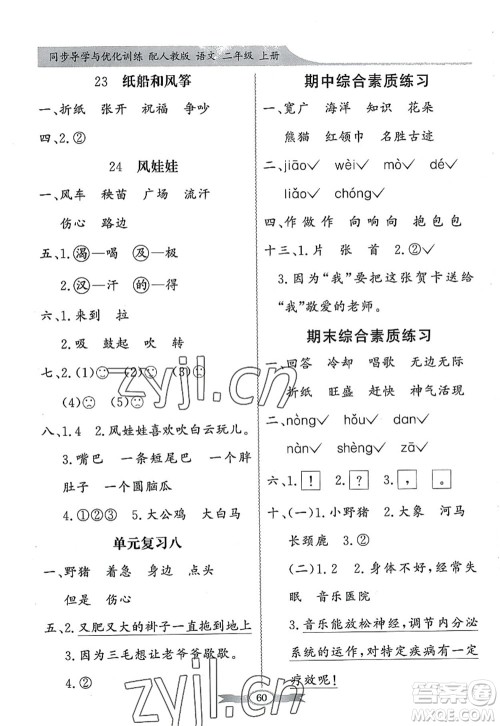 同步导学与优化训练 配人教版 语文 二年级 上册
23 纸船和风筝
一、折纸 张开 祝福 幸福
四、2.②
24 风娃娃
一、风车 秧苗 广场 流汗
伤心 路边
五、1.渴—喝 及—极
2.汉—汗 的—得
六、1.来到 拉
2.吸 鼓起 吹 转
七、2.(1) (2) (3)
(4) (5)
八、1.4 2.风娃娃喜欢吹白云玩儿。
3.嘴巴 一个大锅 胖
肚子 一个圆脑瓜
4.①②③ 5.大公鸡 大白马
单元复习八
一、野猪 着急 身边 点头
但是 伤心
五、2.又肥又大的褂子一直拖到地上
3.因为三毛想让老爷爷歇歇。
4.②
期中综合素质练习
一、宽广 海洋 知识 花朵
熊猫 红领巾 名胜古迹
二、jiāo✓ wèi✓ mò✓ dé✓
liǎo✓ chóng✓
四、作 做 作 向 响 向 抱 包 包
十三、1.片 张 首 2.①②③
3.因为“我”要把这张贺卡送给
“我”敬爱的老师。
期末综合素质练习
一、回答 冷却 唱歌 无边无际
折纸 旺盛 赶快 神气活现
二、nòng✓ hǒu✓ dàn✓
nàn✓ shèng✓ zhā✓
六、1. ! 2. ? 3. 。
十、(一)1.小野猪 2.大象 河马
长颈鹿 3.②
(二)1.② 2.悦耳 音乐 经常失
眠 音乐医院
3.音乐能放松神经，调节内分泌
系统的运作，对特定疾病有一定
疗效呢！
zyjl.cn
zyjl.cn
60